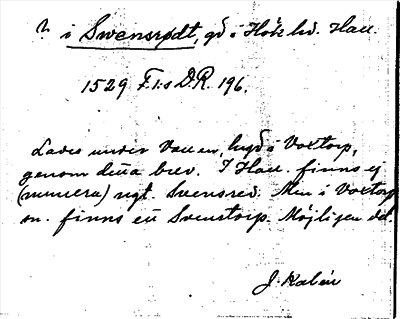 i Swensrødt, gd i Höks hd. Hall.
1529 F.I:s D.R. 196.
Lades under Vallen, lugd i Voxtorp,
genom detta brev. I Hall. finns ej
(numera) ngt. Svensred. Men i Voxtorp
sn. finns ett Svenstorp. Möjligen det.
J. Kalén